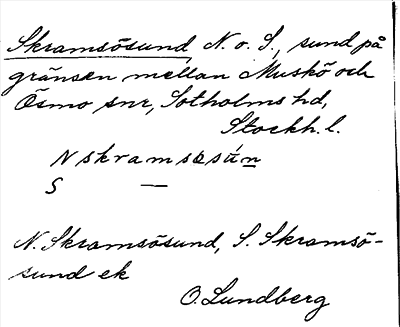 Skramsösund, N. o. S., sund på
gränsen mellan Muskö och
Ösmo snr, Sotholms hd,
Stockh. l.
N skramsösún
S —
N. Skramsösund, S. Skramsö-
sund ek
O. Lundberg